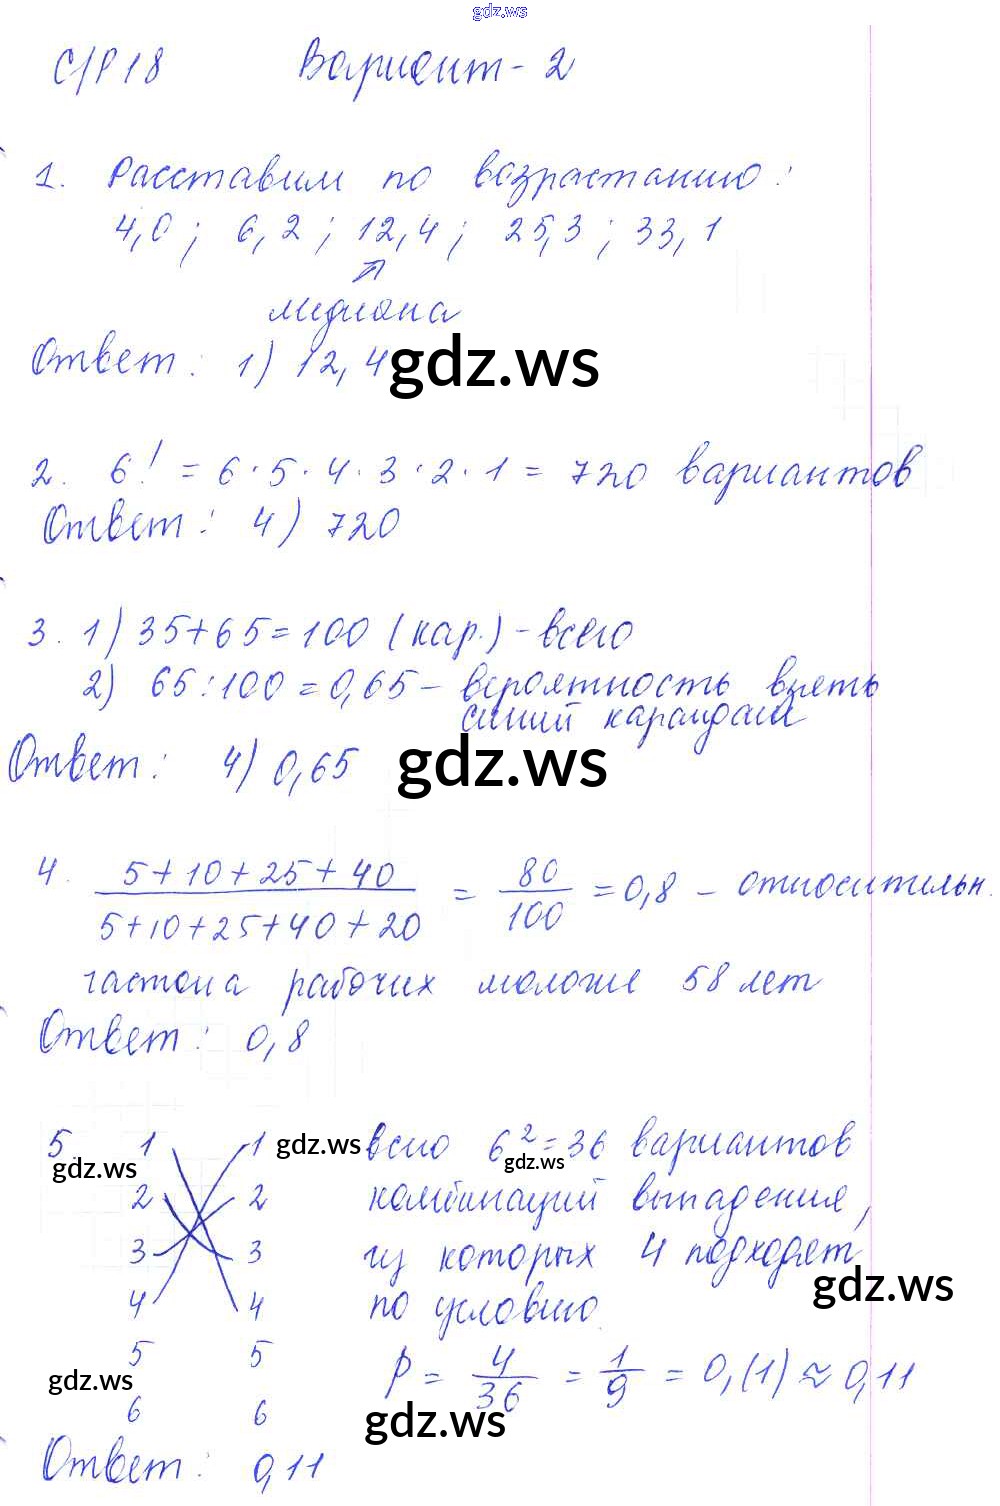 gdz.ws
С/Р 18 Вариант - 2
1. Расставим по возрастанию:
4,0 ; 6,2 ; 12,4 ; 25,3 ; 33,1
медиана
Ответ: 1) 12,4
gdz.ws
2. 6! = 6 · 5 · 4 · 3 · 2 · 1 = 720 вариантов
Ответ: 4) 720
3. 1) 35+65=100 (кар.) - всего
2) 65:100=0,65 - вероятность взять
синий карандаш
Ответ: 4) 0,65
gdz.ws
4. (5+10+25+40)/(5+10+25+40+20) = 80/100 = 0,8 - относительн.
частота рабочих моложе 58 лет
Ответ: 0,8
5. 1 1 gdz.ws всего 6²=36 вариантов
gdz.ws gdz.ws
2 2 комбинаций выпадения,
3 3 из которых 4 подходят
gdz.ws
4 4 по условию.
5 5 P = 4/36 = 1/9 = 0,(1) ≈ 0,11
gdz.ws
6 6 gdz.ws
Ответ: 0,11